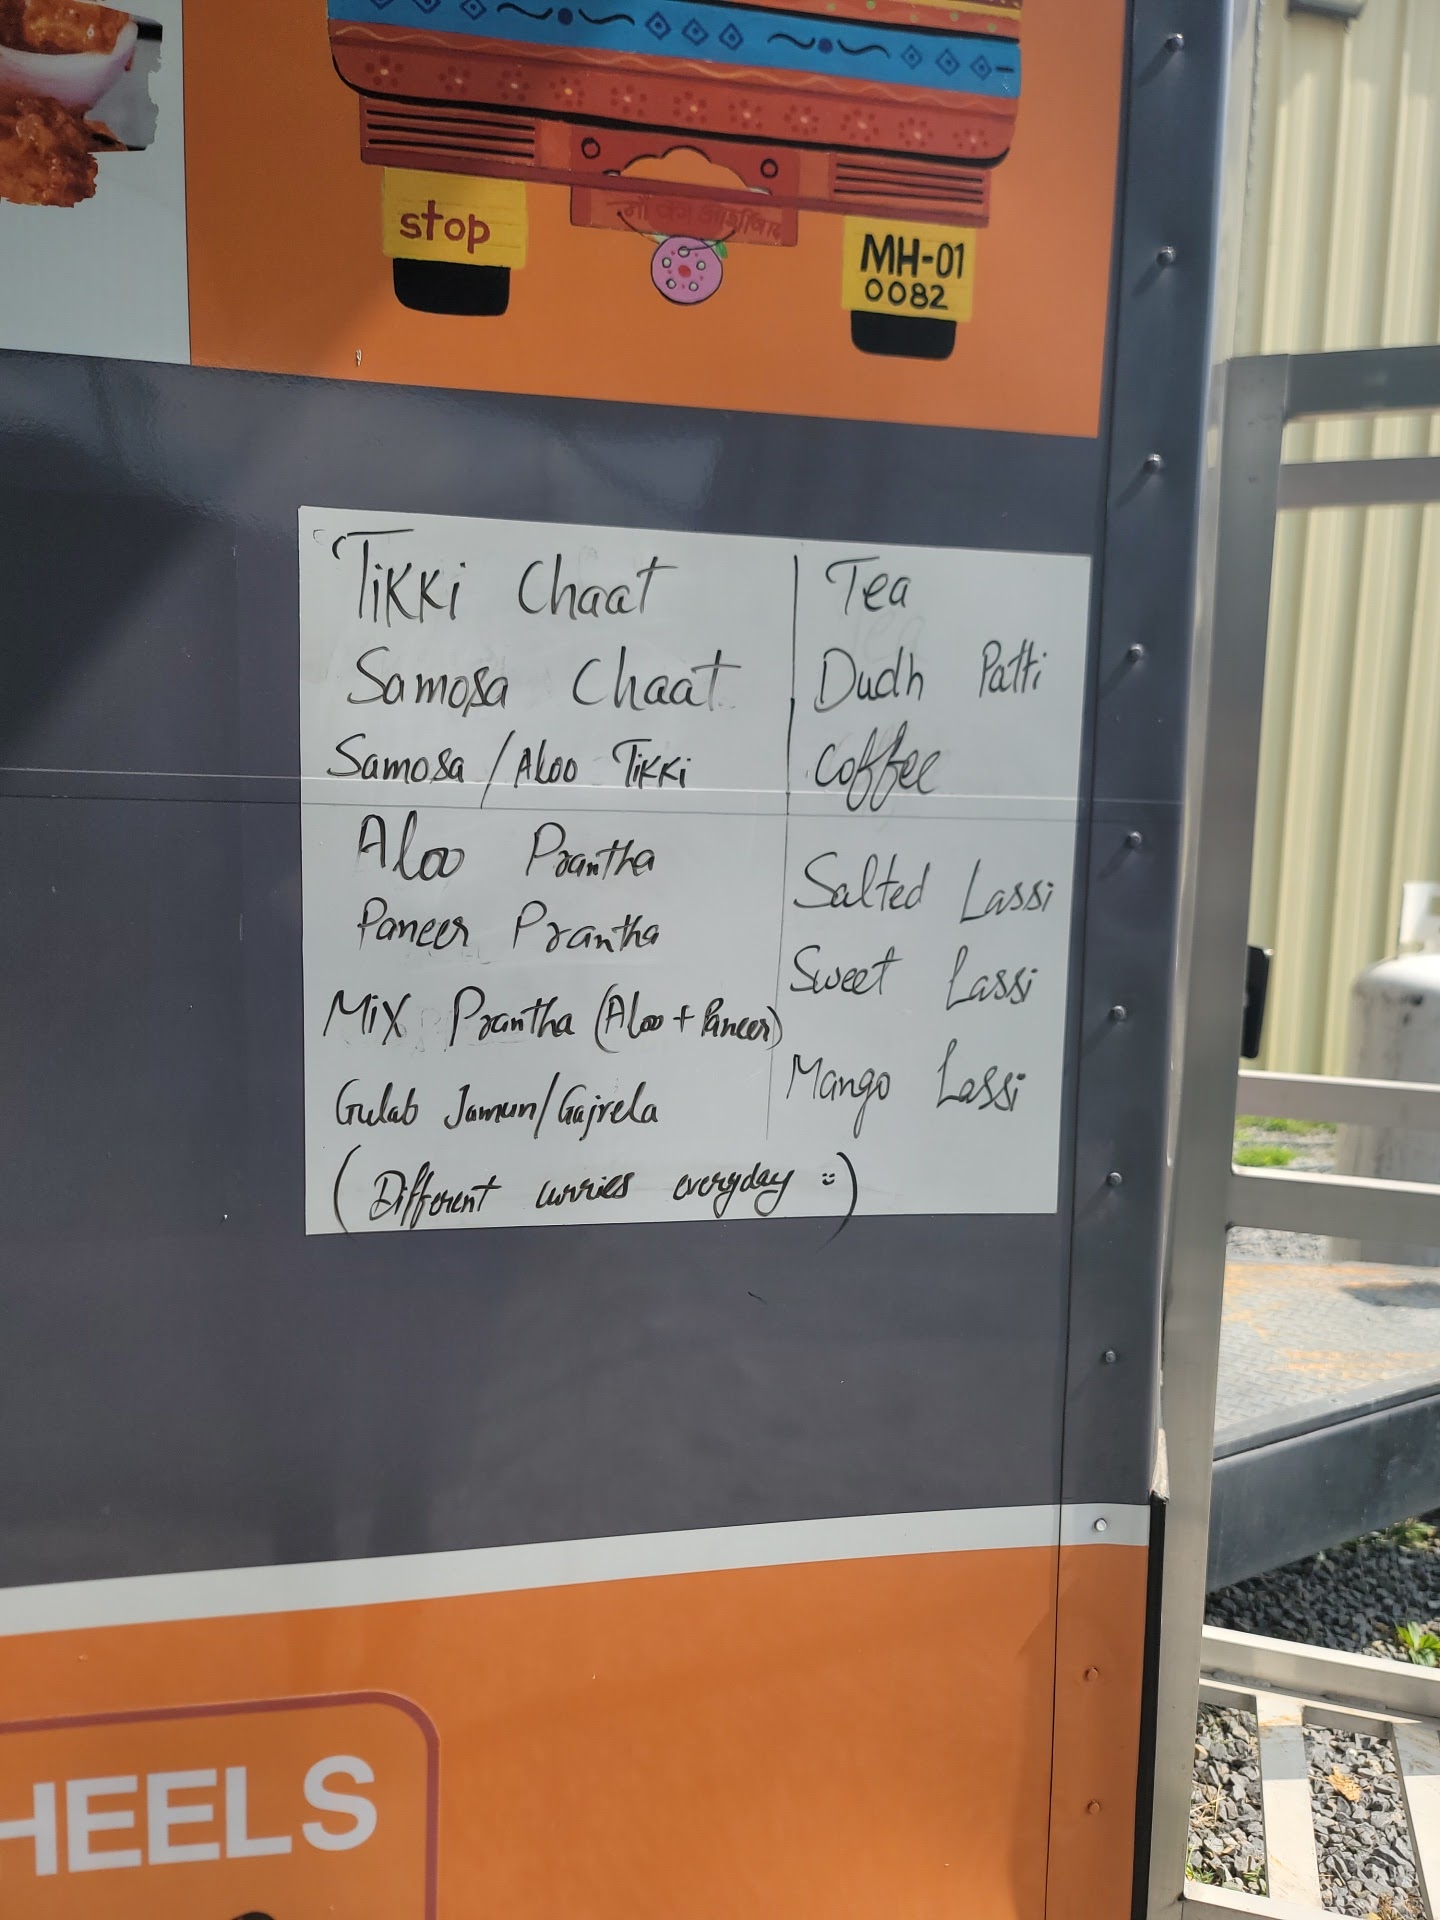 stop
माँ का आशीर्वाद
MH-01
0082
Tikki Chaat
Samosa Chaat
Samosa / Aloo Tikki
Aloo Prantha
Paneer Prantha
Mix Prantha (Aloo + Paneer)
Gulab Jamun/Gajrela
(Different curries everyday :-)
Tea
Dudh Patti
Coffee
Salted Lassi
Sweet Lassi
Mango Lassi
HEELS